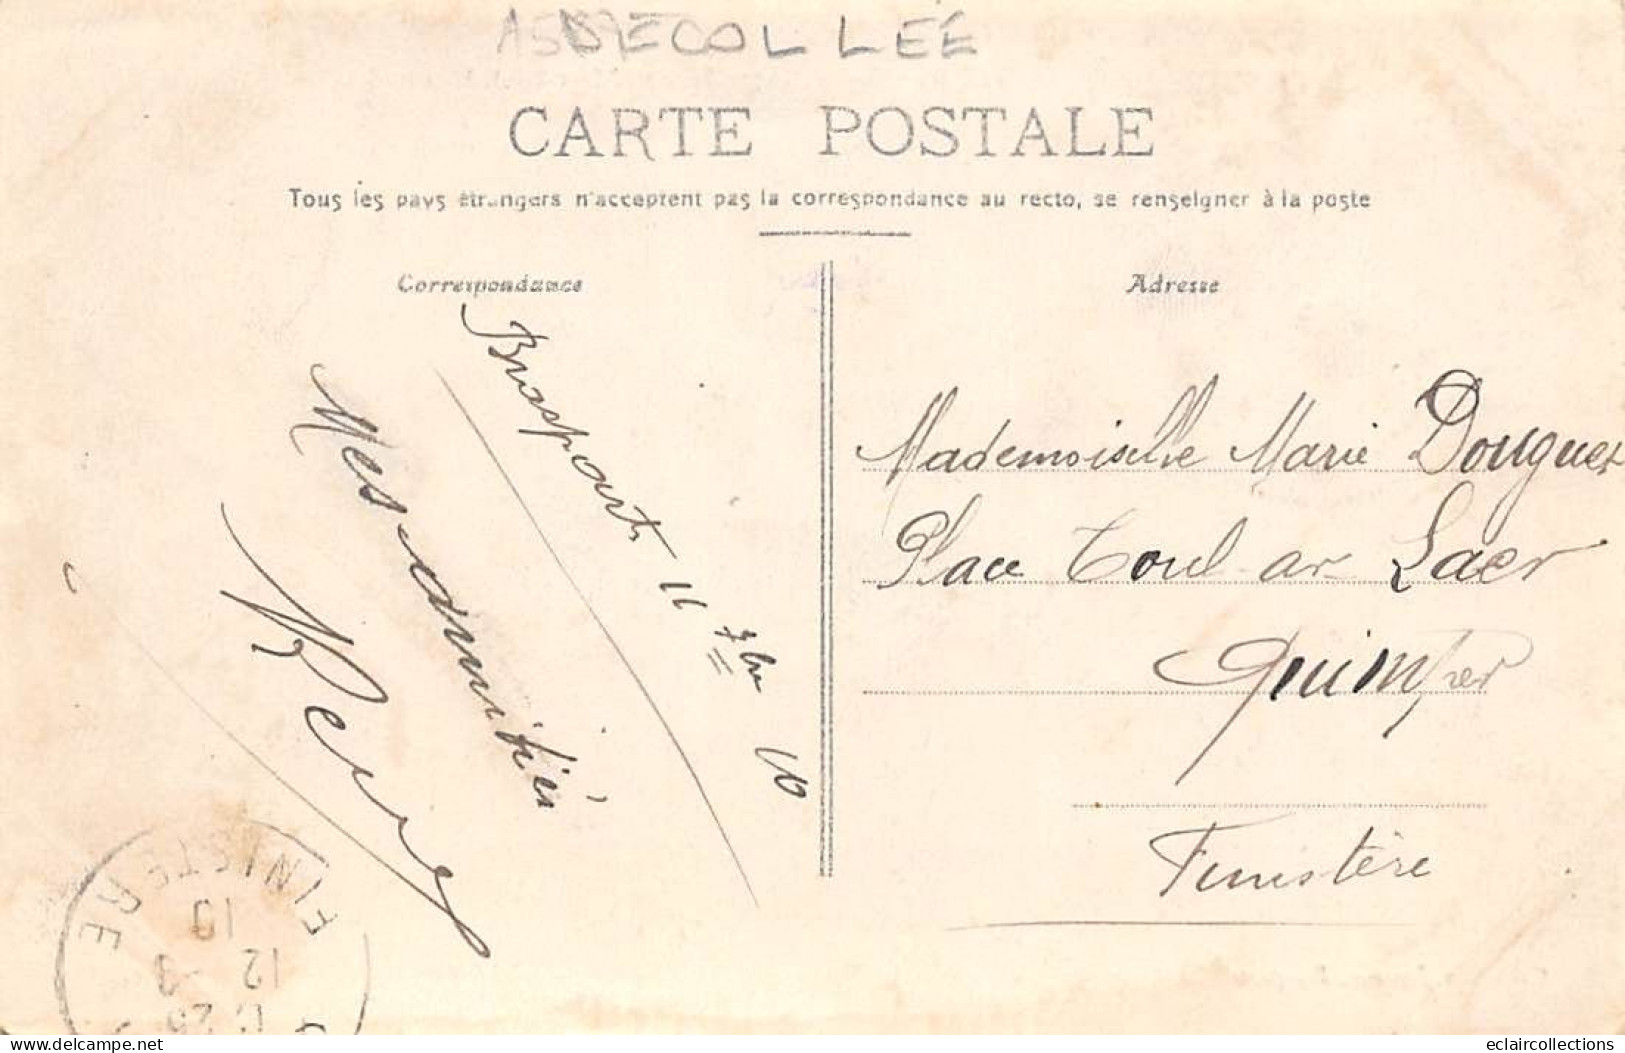 DECOLLÉE
CARTE POSTALE
Tous les pays étrangers n'acceptent pas la correspondance au recto, se renseigner à la poste
Correspondance
Brasparts 11 7bre 10
Mes amitiés
Adresse
Mademoiselle Marie Douguet
Place Toul-ar-Laer
Quimper
Finistère
FINISTERE
10
12 - 9
delcampe.net
eclaircollections